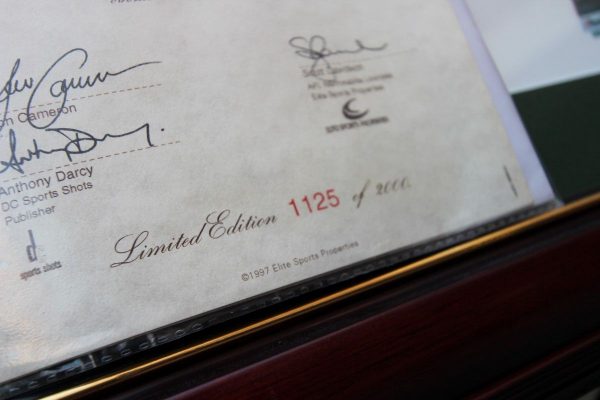 on Cameron
Anthony Darcy
DC Sports Shots
Publisher
sports shots
Elite Sports Properties
Limited Edition 1125 of 2000.
©1997 Elite Sports Properties